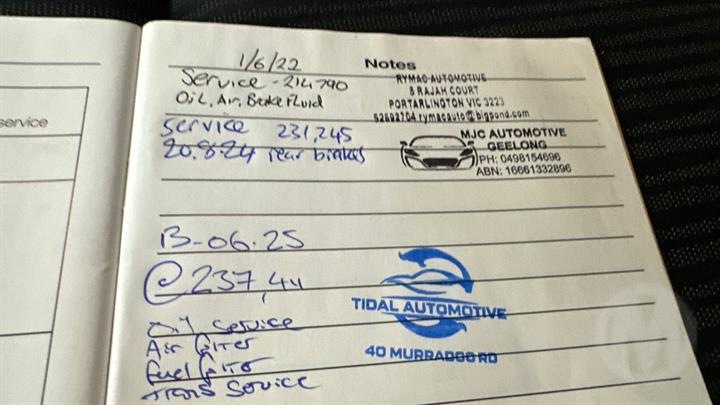 service
1/6/22
Notes
Service - 214790
Oil, Air, Brake Fluid
RYMAC AUTOMOTIVE
8 RAJAH COURT
PORTARLINGTON VIC 3223
52592704 rymacauto@bigpond.com
service 231,245
20.8.24 rear brakes
MJC AUTOMOTIVE
GEELONG
PH: 0498154696
ABN: 16661332896
13-06.25
@237,44
TIDAL AUTOMOTIVE
40 MURRADOC RD
Oil Service
Air filter
fuel filter
trans service